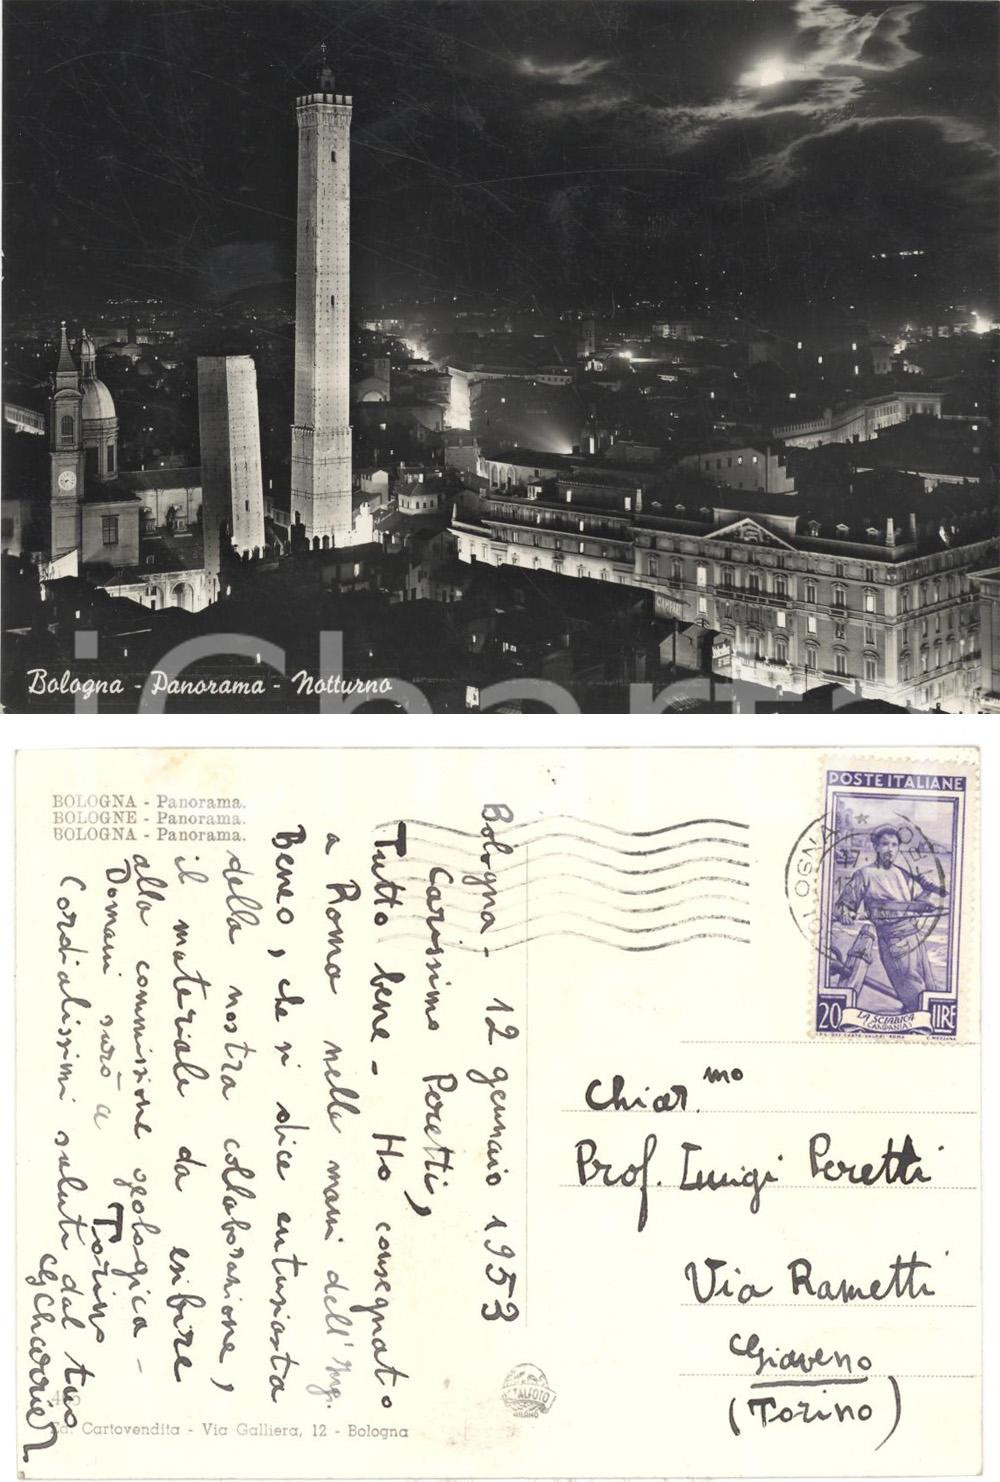 CAMPARI
Bologna - Panorama - Notturno
iCharta
BOLOGNA - Panorama.
BOLOGNE - Panorama.
BOLOGNA - Panorama.
Bologna - 12 gennaio 1953
Carissimo Peretti,
Tutto bene - Ho consegnato
a Roma nelle mani dell'Ing.
Beneo, che si dice entusiasta
della nostra collaborazione,
il materiale da esibire
alla commissione geologica -
Domani sarò a Torino
Cordialissimi saluti dal tuo
GCharrier
POSTE ITALIANE
BOLOGNA
20 LA SCIABICA LIRE
(CAMPANIA)
Chiar.mo
Prof. Luigi Peretti
Via Rametti
Giaveno
(Torino)
MILANO
Ed. Cartovendita - Via Galliera, 12 - Bologna